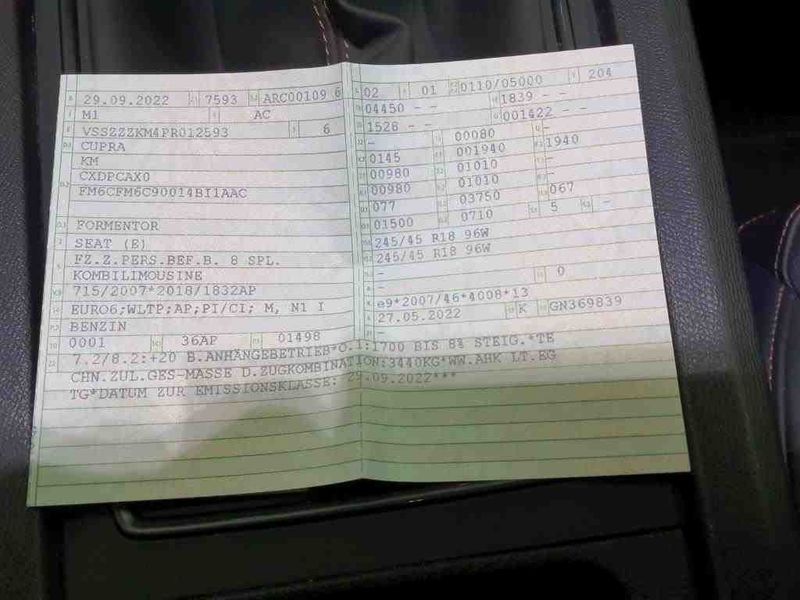 29.09.2022 7593 ARC00109 6
M1 AC
VSSZZZKM4PR012593 6
CUPRA
KM
CXDPCAX0
FM6CFM6C90014BI1AAC
FORMENTOR
SEAT (E)
FZ.Z.PERS.BEF.B. 8 SPL.
KOMBILIMOUSINE
715/2007*2018/1832AP
EURO6;WLTP;AP;PI/CI; M, N1 I
BENZIN
0001 36AP 01498
02 01 0110/05000 204
04450 - - 1839 - -
1528 - - 001422 - -
- 00080 -
0145 001940 1940
00980 01010 -
00980 01010 -
077 03750 067
01500 0710 5 -
245/45 R18 96W
245/45 R18 96W
-
- 0
e9*2007/46*4008*13
27.05.2022 K GN369839
7.2/8.2:+20 B.ANHÄNGEBETRIEB*O.1:1700 BIS 8% STEIG.*TE
CHN.ZUL.GES-MASSE D.ZUGKOMBINATION:3440KG*WW.AHK LT.EG
TG*DATUM ZUR EMISSIONSKLASSE: 29.09.2022***